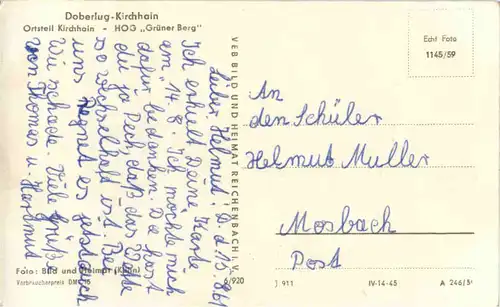 Doberlug-Kirchhain
Ortsteil Kirchhain - HOG „Grüner Berg"
Lieber Helmut! D. d 15.8.61
Ich erhielt Deine Karte
am 14.8. Ich möchte mich
dafür bedanken. Da hast
du ja Pech daß das Wetter
so wechselhaft ist. Bei
uns regnet es jetzt auch
Wie schade. Viele Grüße
von Thomas u. Hartmut
Foto: Bild und Heimat (Kühn)
Verbraucherpreis DM
VEB BILD UND HEIMAT REICHENBACH I. V.
6/920
Echt Foto
1145/59
An
den Schüler
Helmut Müller
Mosbach
Post
J 911
IV-14-45
A 246/5